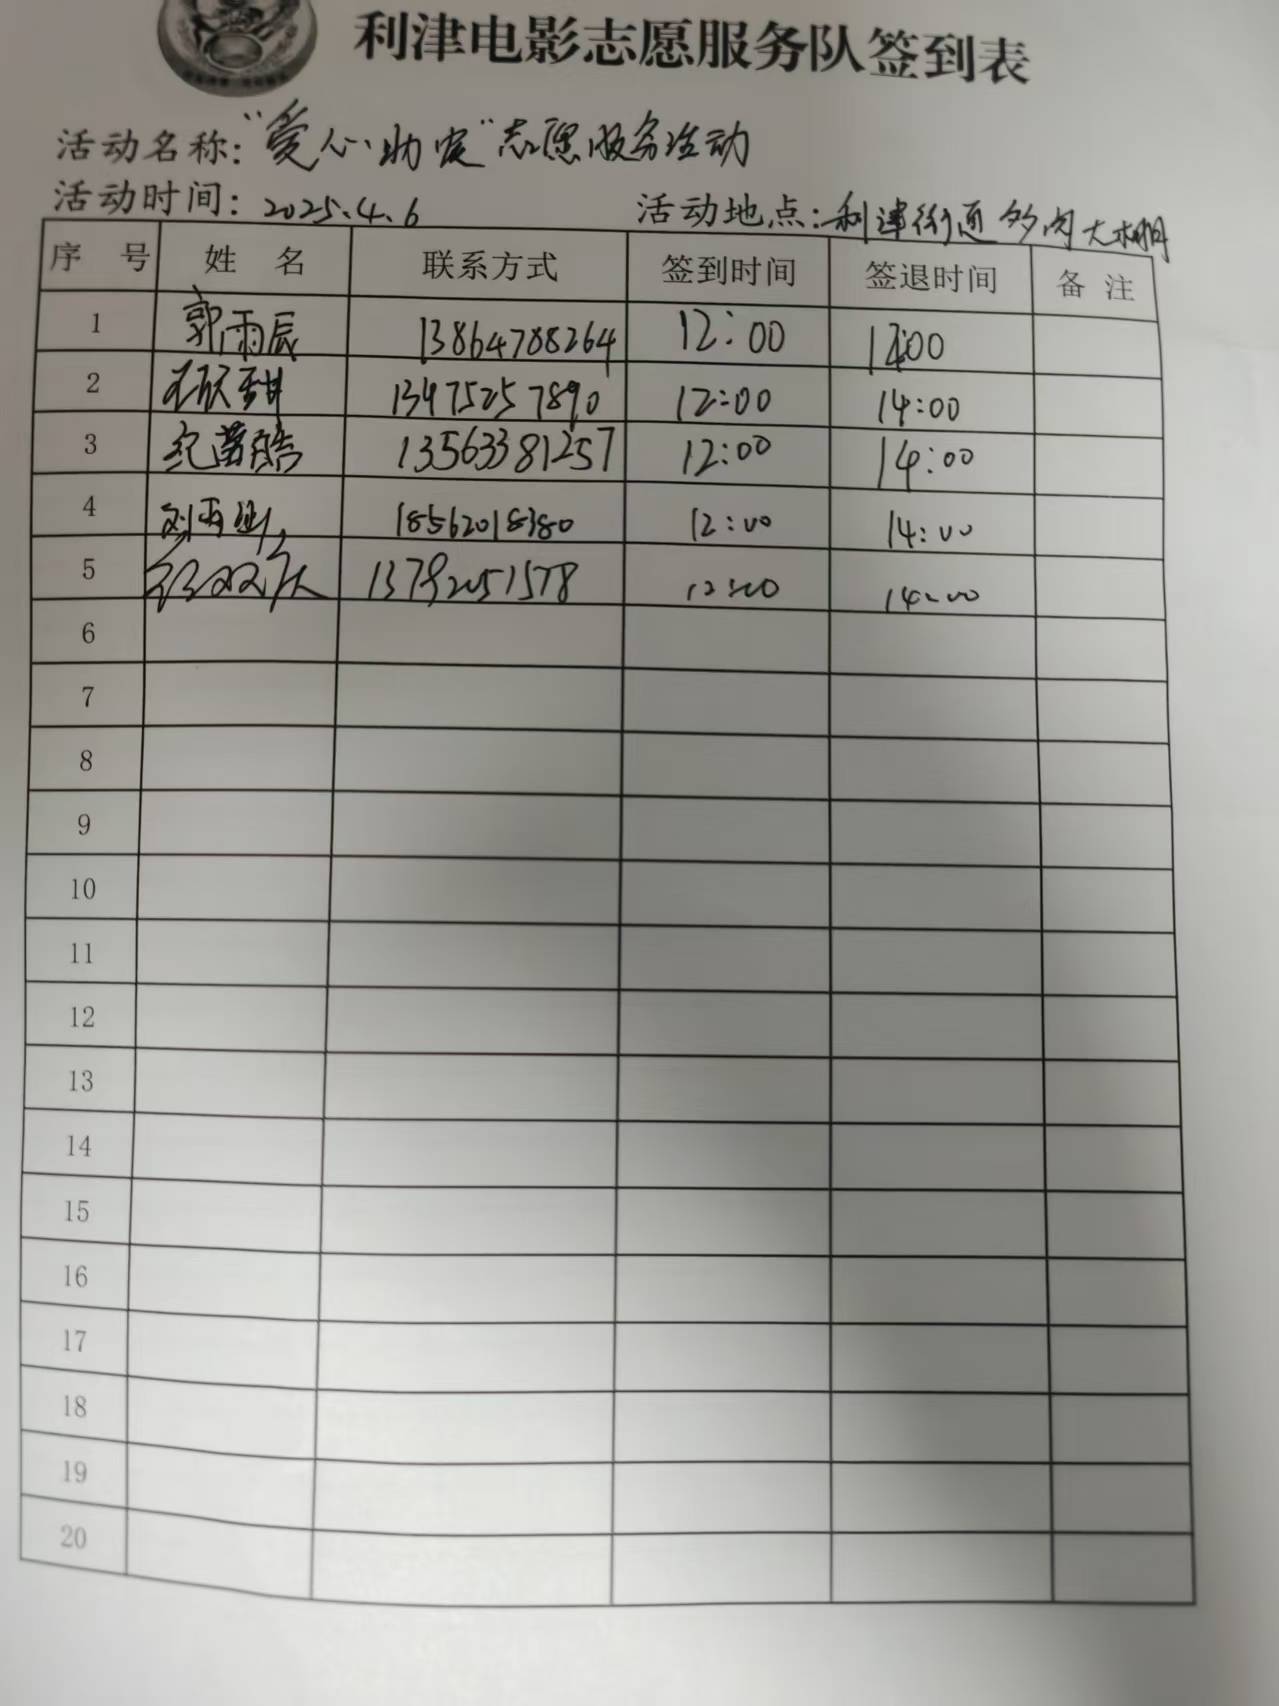 利津电影志愿服务队签到表
活动名称："爱心助农"志愿服务活动
活动时间：2025.4.6 活动地点：利津街道多肉大棚
序 号 姓 名 联系方式 签到时间 签退时间 备 注
1 郭雨辰 13864788264 12:00 14:00
2 王欣甜 13475257890 12:00 14:00
3 纪 13563381257 12:00 14:00
4 刘雨 18562018380 12:00 14:00
5 13792051578 12:00 14:00
6
7
8
9
10
11
12
13
14
15
16
17
18
19
20